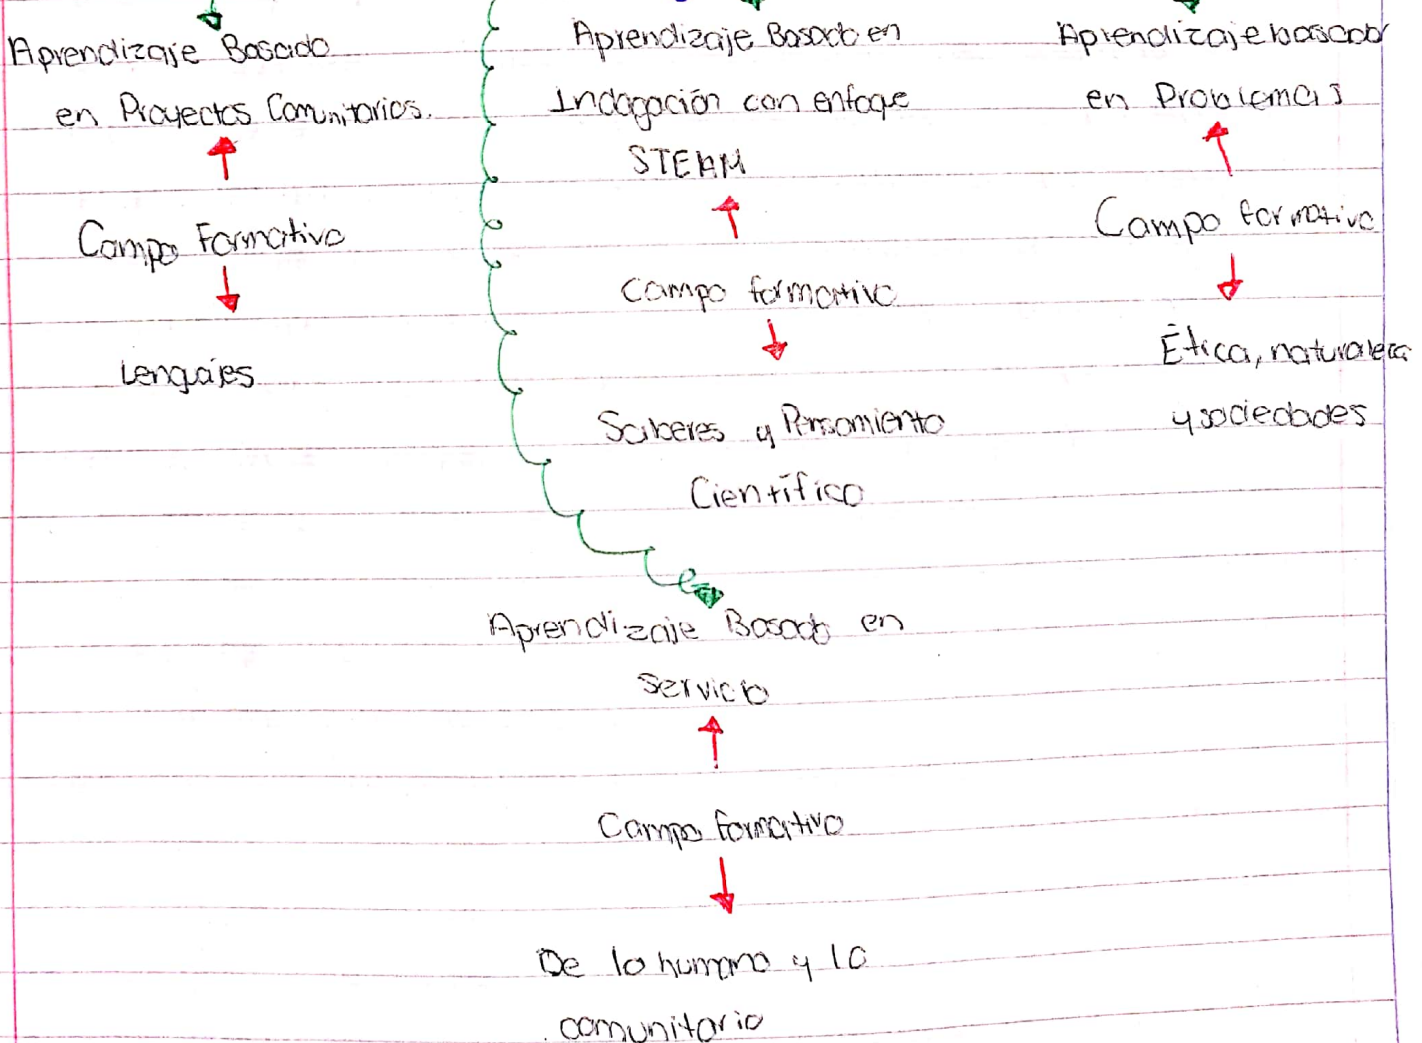 Aprendizaje Basado
en Proyectos Comunitarios.
Campo Formativo
Lenguajes
Aprendizaje Basado en
Indagación con enfoque
STEAM
Campo formativo
Saberes y Pensamiento
Científico
Aprendizaje basado
en Problemas
Campo formativo
Ética, naturaleza
y sociedades
Aprendizaje Basado en
Servicio
Campo formativo
De lo humano y lo
comunitario